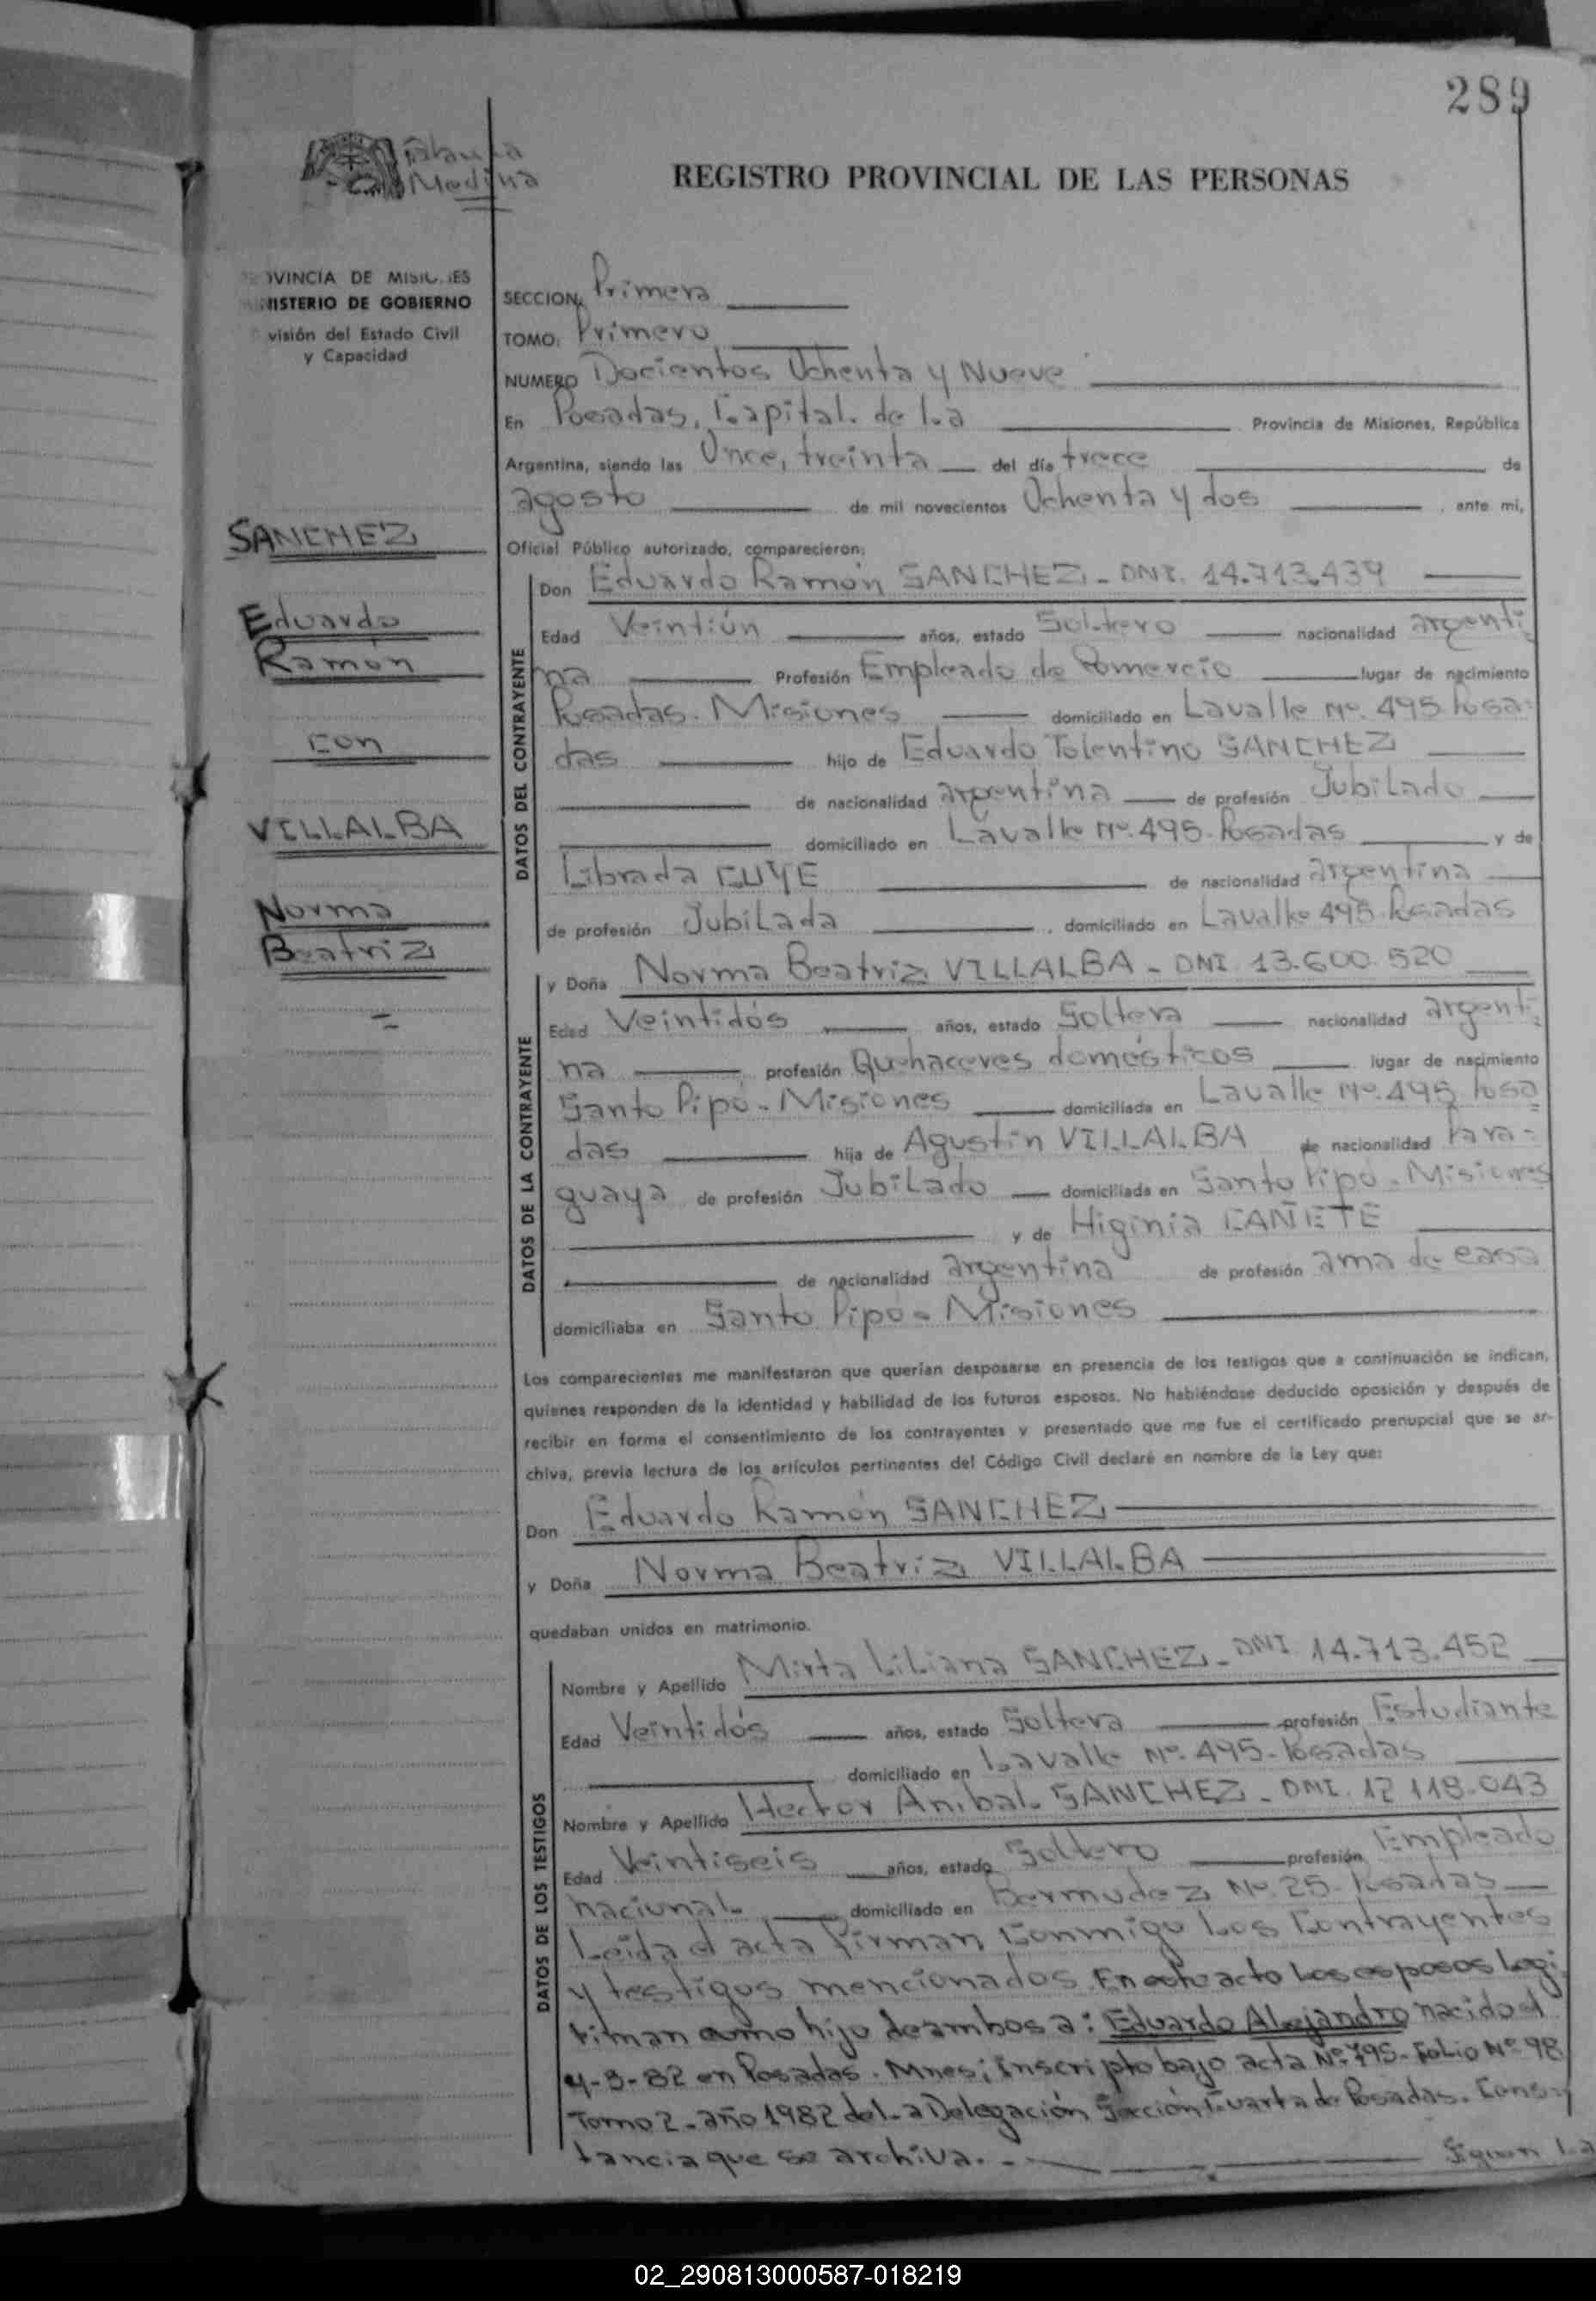 289
Blanca
Medina
REGISTRO PROVINCIAL DE LAS PERSONAS
OVINCIA DE MISIONES
NISTERIO DE GOBIERNO
visión del Estado Civil
y Capacidad
SECCION. Primera
TOMO: Primero
NUMERO Docientos Ochenta y Nueve
En Posadas, Capital de la Provincia de Misiones, República
Argentina, siendo las Once, treinta del día trece de
agosto de mil novecientos Ochenta y dos , ante mi,
Oficial Público autorizado, comparecieron:
SANCHEZ
Eduardo
Ramón
con
VILLALBA
Norma
Beatriz
DATOS DEL CONTRAYENTE
Don Eduardo Ramón SANCHEZ - DNI. 14.713.439
Edad Veintiún años, estado Soltero nacionalidad argenti
na Profesión Empleado de Comercio lugar de nacimiento
Posadas. Misiones domiciliado en Lavalle Nº. 495 Posa-
das hijo de Eduardo Tolentino SANCHEZ
de nacionalidad argentina de profesión Jubilado
domiciliado en Lavalle Nº. 495. Posadas y de
Librada CUYE de nacionalidad argentina
de profesión Jubilada , domiciliado en Lavalle 495. Posadas
DATOS DE LA CONTRAYENTE
y Doña Norma Beatriz VILLALBA - DNI 13.600.520
Edad Veintidós años, estado Soltera nacionalidad argenti
na profesión Quehaceres domésticos lugar de nacimiento
Santo Pipó - Misiones domiciliada en Lavalle Nº. 495 Posa
das hija de Agustin VILLALBA de nacionalidad Para-
guaya de profesión Jubilado domiciliada en Santo Pipó - Misiones
y de Higinia CAÑETE
de nacionalidad argentina de profesión ama de casa
domiciliaba en Santo Pipó - Misiones
Los comparecientes me manifestaron que querían desposarse en presencia de los testigos que a continuación se indican,
quienes responden de la identidad y habilidad de los futuros esposos. No habiéndose deducido oposición y después de
recibir en forma el consentimiento de los contrayentes y presentado que me fue el certificado prenupcial que se ar-
chiva, previa lectura de los artículos pertinentes del Código Civil declaré en nombre de la Ley que:
Don Eduardo Ramón SANCHEZ
y Doña Norma Beatriz VILLALBA
quedaban unidos en matrimonio.
DATOS DE LOS TESTIGOS
Nombre y Apellido Mirta Liliana SANCHEZ - DNI 14.713.452
Edad Veintidós años, estado Soltera profesión Estudiante
domiciliado en Lavalle Nº. 495 - Posadas
Nombre y Apellido Hector Anibal SANCHEZ - DNI. 12 118.043
Edad Veintiseis años, estado Soltero profesión Empleado
nacional domiciliado en Bermudez Nº. 25. Posadas
Leida el acta firman conmigo los Contrayentes
y testigos mencionados. En este acto los esposos legi
timan como hijo de ambos a: Eduardo Alejandro nacido el
4-3-82 en Posadas. Mnes; inscripto bajo acta Nº 795 - Folio Nº 98
Tomo 2 - año 1982 de la Delegación Sección Cuarta de Posadas. Cons-
tancia que se archiva. -
02_290813000587-018219